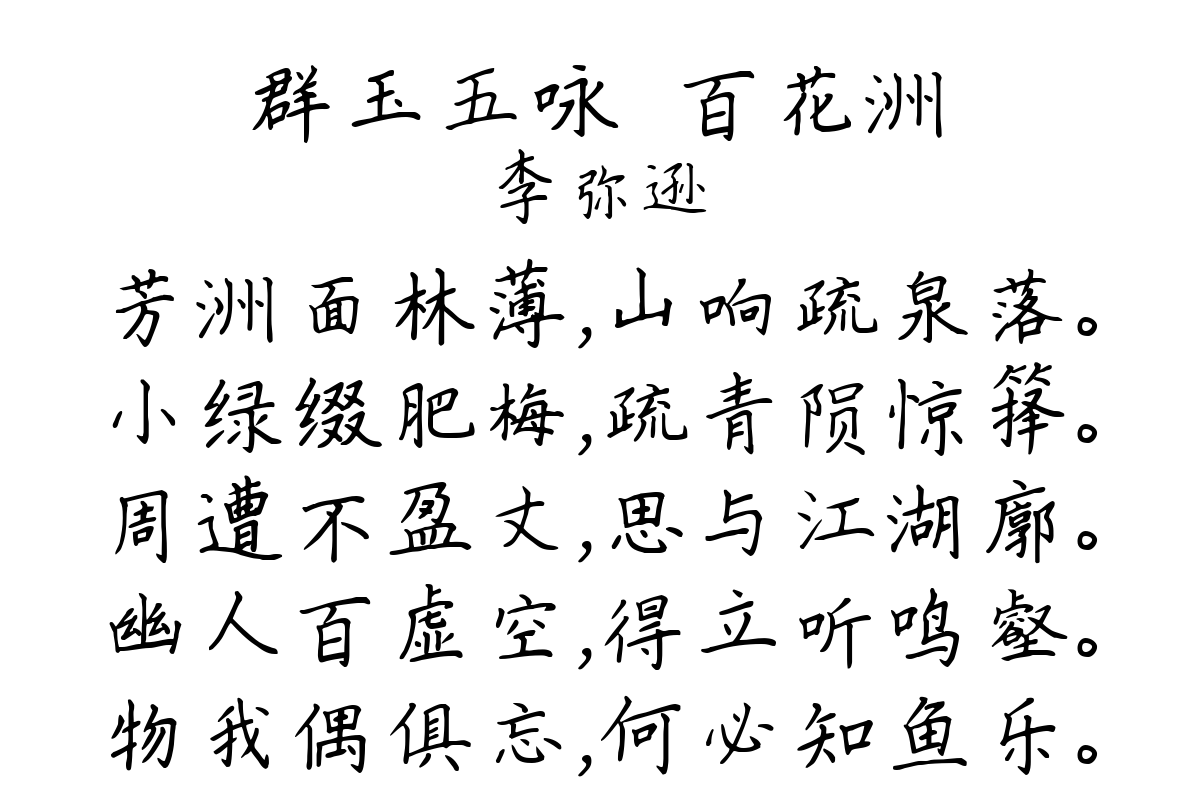 群玉五咏 百花洲
李弥逊
芳洲面林薄,山响疏泉落。
小绿缀肥梅,疏青陨惊箨。
周遭不盈丈,思与江湖廓。
幽人百虚空,得立听鸣壑。
物我偶俱忘,何必知鱼乐。